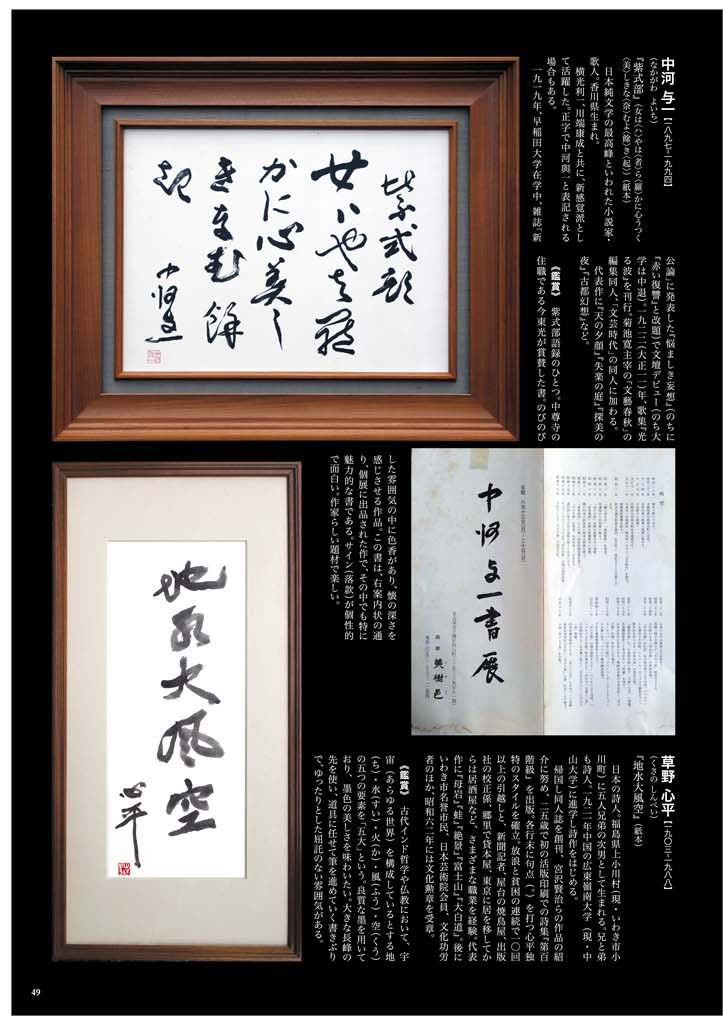 中河 与一【一八九七-一九九四】
(なかがわ よいち)
『紫式部』(女は〈ハ〉やは〈者〉ら〈羅〉かに心うつく
〈美〉しきな〈奈〉むよ〈餘〉き〈起〉)(紙本)
日本純文学の最高峰といわれた小説家・
歌人。香川県生まれ。
横光利一、川端康成と共に、新感覚派とし
て活躍した。正字で中河與一と表記される
場合もある。
一九一九年、早稲田大学在学中、雑誌『新
公論』に発表した『悩ましき妄想』(のちに
『赤い復讐』と改題)で文壇デビュー(のち大
学は中退)。一九二二(大正一一)年、歌集『光
る波』を刊行。菊池寛主宰の「文藝春秋」の
編集同人、「文芸時代」の同人に加わる。
代表作に『天の夕顔』『失楽の庭』『探美の
夜』『古都幻想』など。
《鑑賞》 紫式部語録のひとつ。中尊寺の
住職である今東光が賞賛した書。のびのび
した雰囲気の中に色香があり、懐の深さを
感じさせる作品。この書は、右案内状の通
り、個展に出品された作で、その中でも特に
魅力的な書である。サイン(落款)が個性的
で面白い。作家らしい題材で楽しい。
紫式部
女ハやは羅
かに心美し
きなむ餘
起
中河与一
中河与一書展
草野 心平【一九〇三-一九八八】
(くさの しんぺい)
『地水火風空』(紙本)
日本の詩人。福島県上小川村(現・いわき市小
川町)に五人兄弟の次男として生まれる。兄と弟
も詩人。一九二一年中国の広東嶺南大学(現・中
山大学)に進学し詩作をはじめる。
帰国し同人誌を創刊、宮沢賢治らの作品の紹
介に努め、二五歳で初の活版印刷での詩集『第百
階級』を出版。各行末に句点(。)を打つ心平独
特のスタイルを確立。放浪と貧困の連続で一〇回
以上の引越しと、新聞記者、屋台の焼鳥屋、出版
社の校正係、郷里で貸本屋、東京に居を移してか
らは居酒屋など、さまざまな職業を経験。代表
作に『母岩』『蛙』『絶景』『富士山』『大白道』。後に
いわき市名誉市民、日本芸術院会員、文化功労
者のほか、昭和六二年には文化勲章を受章。
《鑑賞》 古代インド哲学や仏教において、宇
宙(あらゆる世界)を構成しているとする地
(ち)・水(すい)・火(か)・風(ふう)・空(くう)
の五つの要素を「五大」という。良質な墨を用いて
おり、墨色の美しさを味わいたい。大きな長峰の
先を使い、道具に任せて筆を進めていく書きぶり
で、ゆったりとした屈託のない雰囲気がある。
地水火風空
心平
49